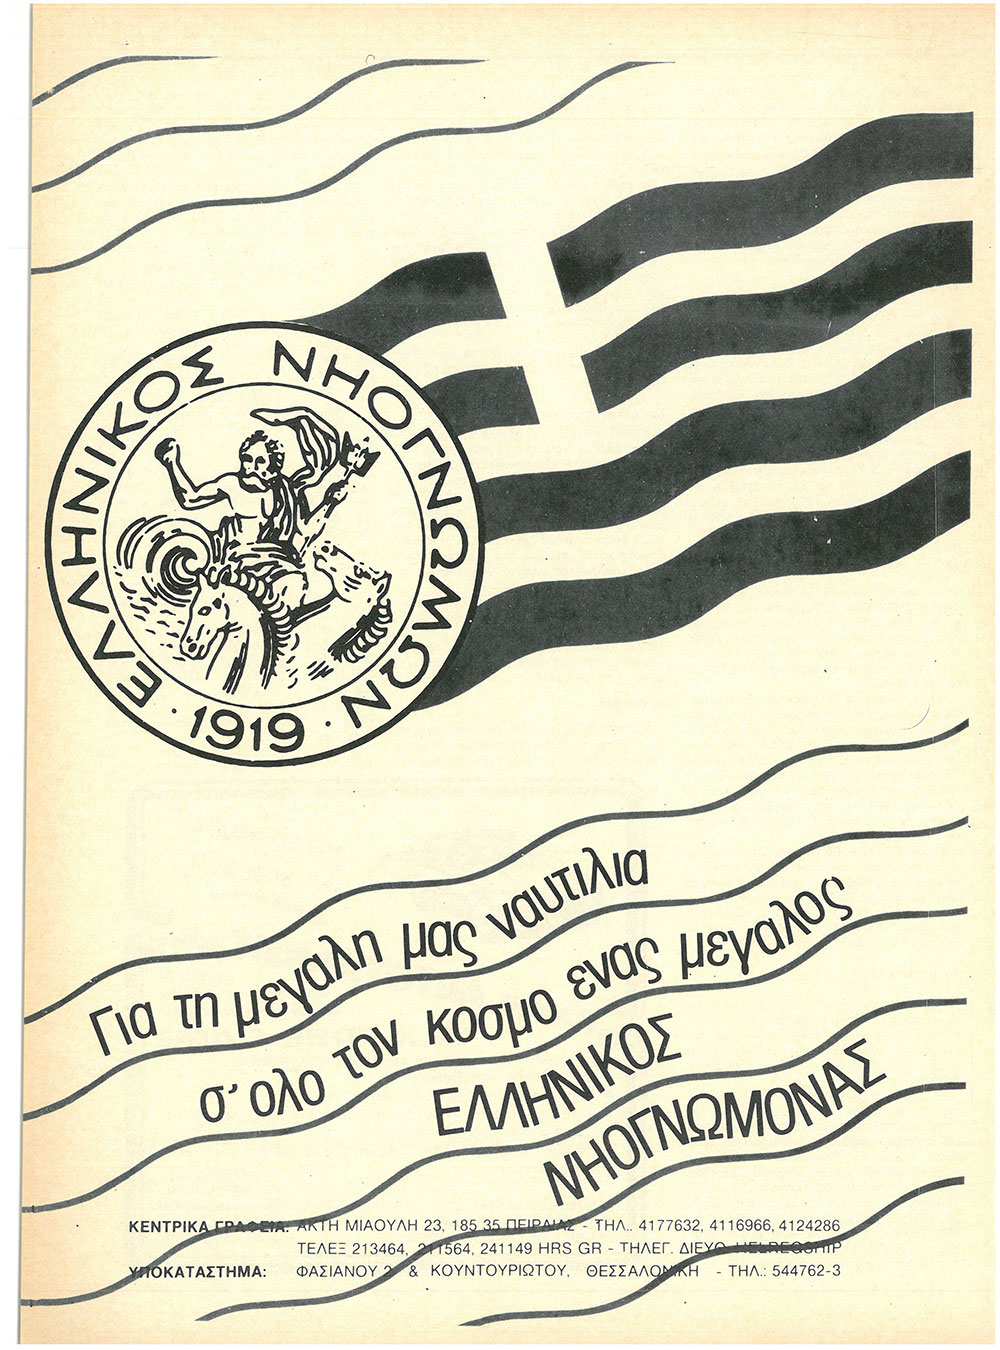 ΕΛΛΗΝΙΚΟΣ ΝΗΟΓΝΩΜΩΝ
· 1919 ·
Για τη μεγαλη μας ναυτιλια
σ' ολο τον κοσμο ενας μεγαλος
ΕΛΛΗΝΙΚΟΣ
ΝΗΟΓΝΩΜΟΝΑΣ
ΚΕΝΤΡΙΚΑ ΓΡΑΦΕΙΑ: ΑΚΤΗ ΜΙΑΟΥΛΗ 23, 185 35 ΠΕΙΡΑΙΑΣ - ΤΗΛ.. 4177632, 4116966, 4124286
ΤΕΛΕΞ 213464, 211564, 241149 HRS GR - ΤΗΛΕΓ. ΔΙΕΥΘ. HELREGSHIP
ΥΠΟΚΑΤΑΣΤΗΜΑ: ΦΑΣΙΑΝΟΥ 2 & ΚΟΥΝΤΟΥΡΙΩΤΟΥ, ΘΕΣΣΑΛΟΝΙΚΗ - ΤΗΛ.: 544762-3